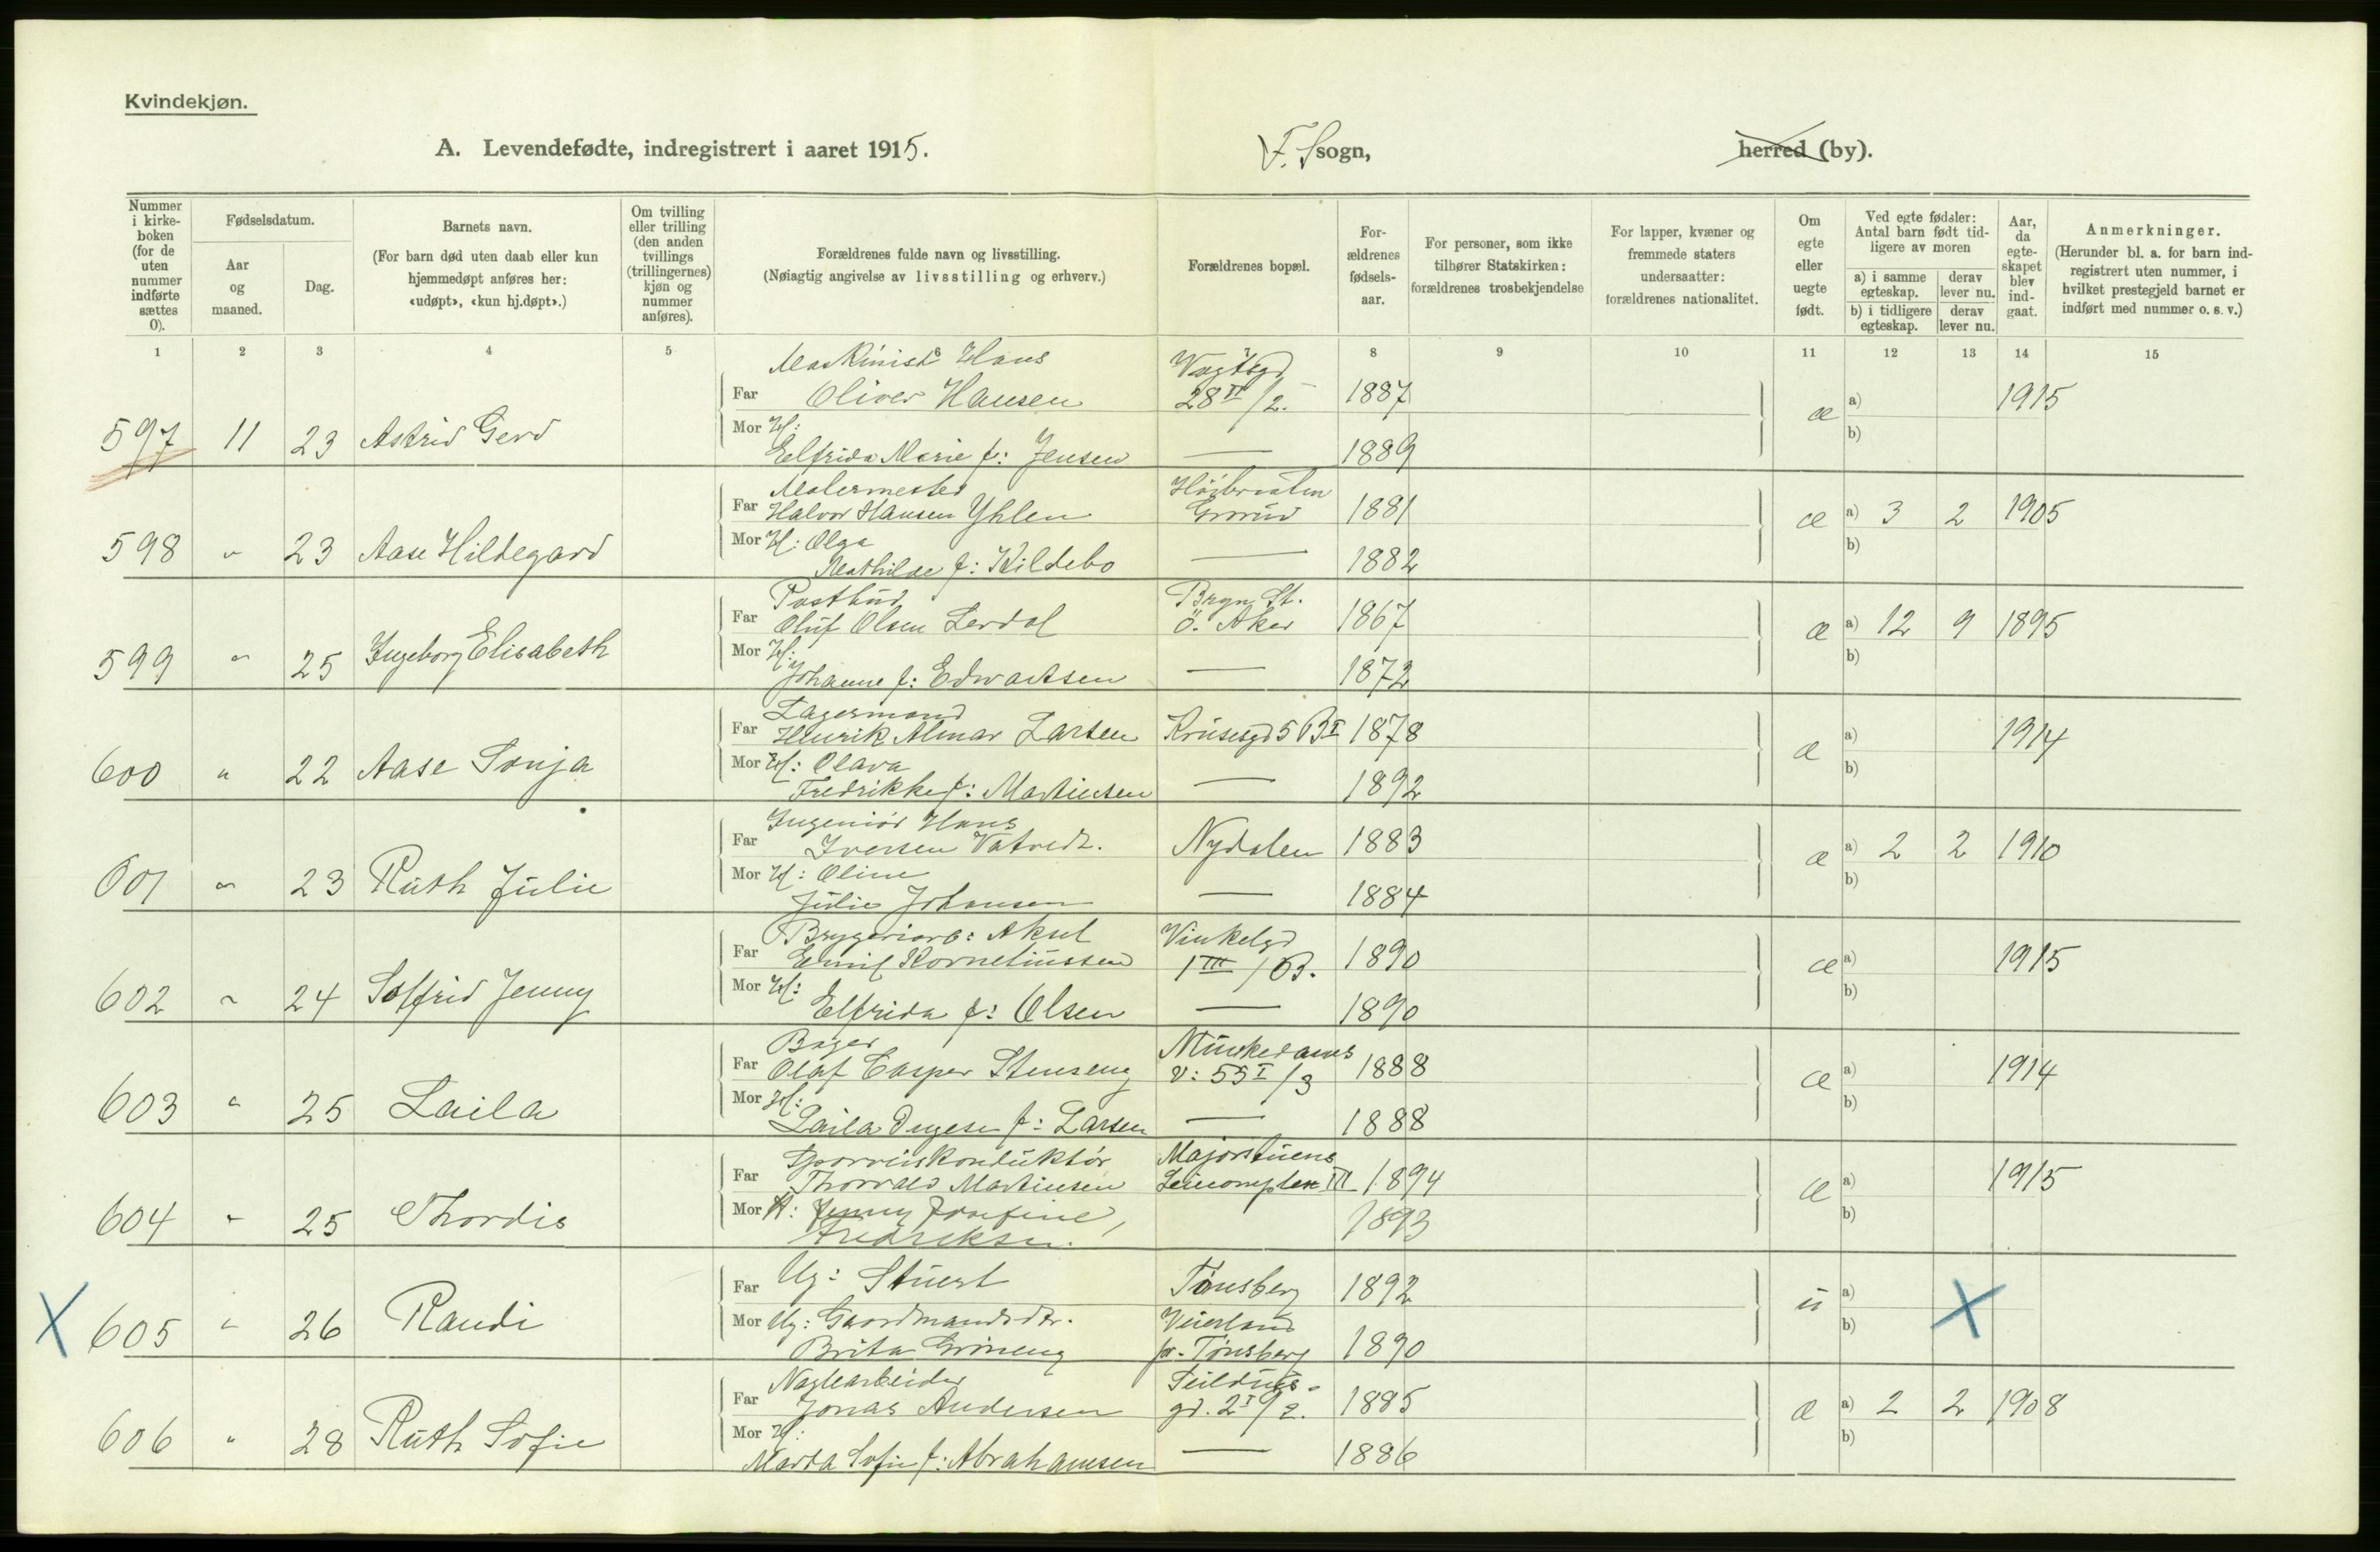 Kvindekjøn.
A. Levendefødte, indregistrert i aaret 1915.
F. S sogn,
herred (by).
Nummer i kirkeboken (for de uten nummer indførte sættes 0).
Fødselsdatum.
Aar og maaned.
Dag.
Barnets navn.
(For barn død uten daab eller kun hjemmedøpt anføres her: «udøpt», «kun hj.døpt».)
Om tvilling eller trilling (den anden tvillings (trillingernes) kjøn og nummer anføres).
Forældrenes fulde navn og livsstilling.
(Nøiagtig angivelse av livsstilling og erhverv.)
Forældrenes bopæl.
Forældrenes fødselsaar.
For personer, som ikke tilhører Statskirken: forældrenes trosbekjendelse
For lapper, kvæner og fremmede staters undersaatter: forældrenes nationalitet.
Om egte eller uegte født.
Ved egte fødsler: Antal barn født tidligere av moren
a) i samme egteskap. derav lever nu.
b) i tidligere egteskap. derav lever nu.
Aar, da egteskapet blev indgaat.
Anmerkninger.
(Herunder bl. a. for barn indregistrert uten nummer, i hvilket prestegjeld barnet er indført med nummer o. s. v.)
1 2 3 4 5 6 7 8 9 10 11 12 13 14 15
Maskinist Hans Vogtsgd
Far Oliver Hansen 28 II/2. 1887 a) 1915
597 11 23 Astrid Gerd Mor H: æ b)
Elfrida Marie f: Jensen — 1889
Malermester Høibraaten
Far Halvor Hansen Yhlen Grorud 1881 a) 3 2 1905
598 " 23 Aase Hildegard Mor H: Olga æ b)
Mathilde f: Kildebo — 1882
Postbud Bryn St.
Far Oluf Olsen Lerdal Ö. Aker 1867 a) 12 9 1895
599 " 25 Ingeborg Elisabeth Mor H: æ b)
Johanne f: Edvartsen — 1872
Lagermand
Far Henrik Almar Larsen Krusesgd 5 B I 1878 a) 1914
600 " 22 Aase Sonja Mor H: Olava æ b)
Fredrikke f: Martinsen — 1892
Ingeniør Hans
Far Iversen Vatvedt. Nydalen 1883 a) 2 2 1910
601 " 23 Ruth Julie Mor H: Oline æ b)
Julie Johansen — 1884
Bryggeriarb: Aksel Vinkelgd
Far Emil Korneliussen 1 III / B. 1890 a) 1915
602 " 24 Solfrid Jenny Mor H: æ b)
Elfrida f: Olsen — 1890
Bager Munkedams
Far Olaf Casper Stenseng v: 55 I/3 1888 a) 1914
603 " 25 Laila Mor H: æ b)
Laila f: Larsen — 1888
Sporveiskonduktør Majorstuens
Far Thorvald Martinsen III 1894 a) 1915
604 " 25 Thordis Mor H: Jenny Josefine, 1893 æ b)
Fredriksen.
Far Ug: Tønsberg 1892 a)
X 605 " 26 Randi Mor Ug: Gaardmandsdtr. Veierland u b) X
Brita Grøneng pr. Tønsberg 1890
Naglearbeider
Far Jonas Andersen gd. 2 I/2. 1885 a) 2 2 1908
606 " 28 Ruth Sofie Mor H: æ b)
Marta Sofie f: Abrahamsen — 1886